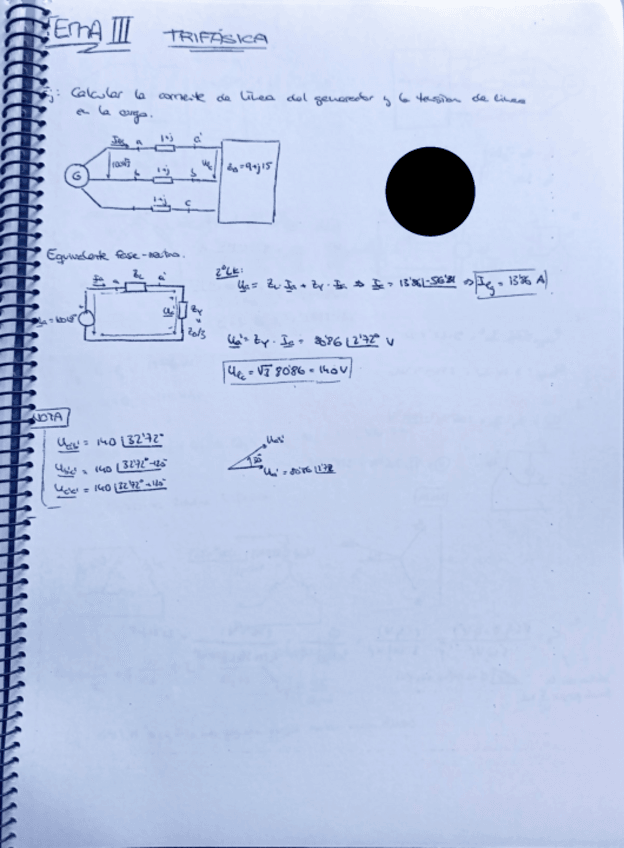 TEMA III TRIFÁSICA
Ej: Calcular la corriente de línea del generador y la tensión de línea
en la carga.
a 1+j a'
G b 1+j b'
1+j c
Equivalente fase-neutro.
2º LK:
Ua = ZL · Ia + Zy · Ia ⇒ Ia = 13'86 |-56'31 ⇒ ILg = 13'86 A
Ua' = Zy · Ia = 80'86 |2'72° V
ULc = √3 80'86 = 140 V
NOTA
Ua'b' = 140 |32'72°
Ub'c' = 140 |32'72°-120°
Uc'a' = 140 |32'72°+120°
30°